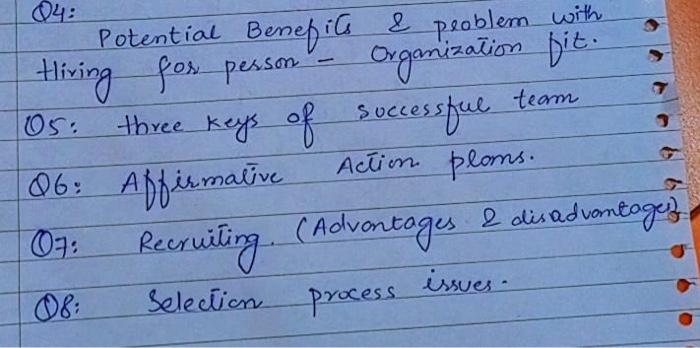 Q4:
Potential Benefits & problem with
Hiring for person - Organization fit.
Q5: three keys of successful team
Q6: Affirmative Action plans.
Q7: Recruiting. (Advantages & disadvantages)
Q8: Selection process issues.